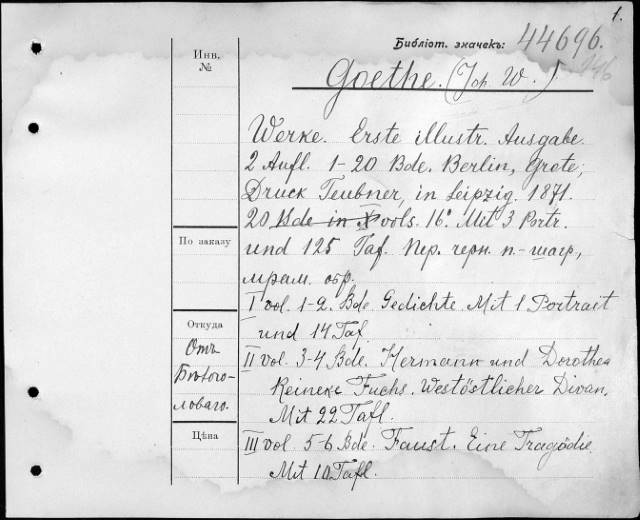 1.
Библіот. значекъ: 44696.
Инв.
№
Goethe. (Joh. W.)
Werke. Erste illustr. Ausgabe.
2 Aufl. 1-20 Bde. Berlin, Grote;
Druck Teubner, in Leipzig. 1871.
20 Bde in X vols. 16°. Mit 3 Portr.
По заказу
und 125 Taf. Пер. черн. п.-шагр.,
мрам. обр.
I vol. 1-2. Bde. Gedichte. Mit 1 Portrait
und 14 Taf.
Откуда
Отъ
Бѣлого-
ловаго.
II vol. 3-4 Bde. Hermann und Dorothea
Reineke Fuchs. Westöstlicher Divan.
Mit 22 Tafl.
Цѣна
III vol. 5-6 Bde. Faust. Eine Tragödie
Mit 10 Tafl.